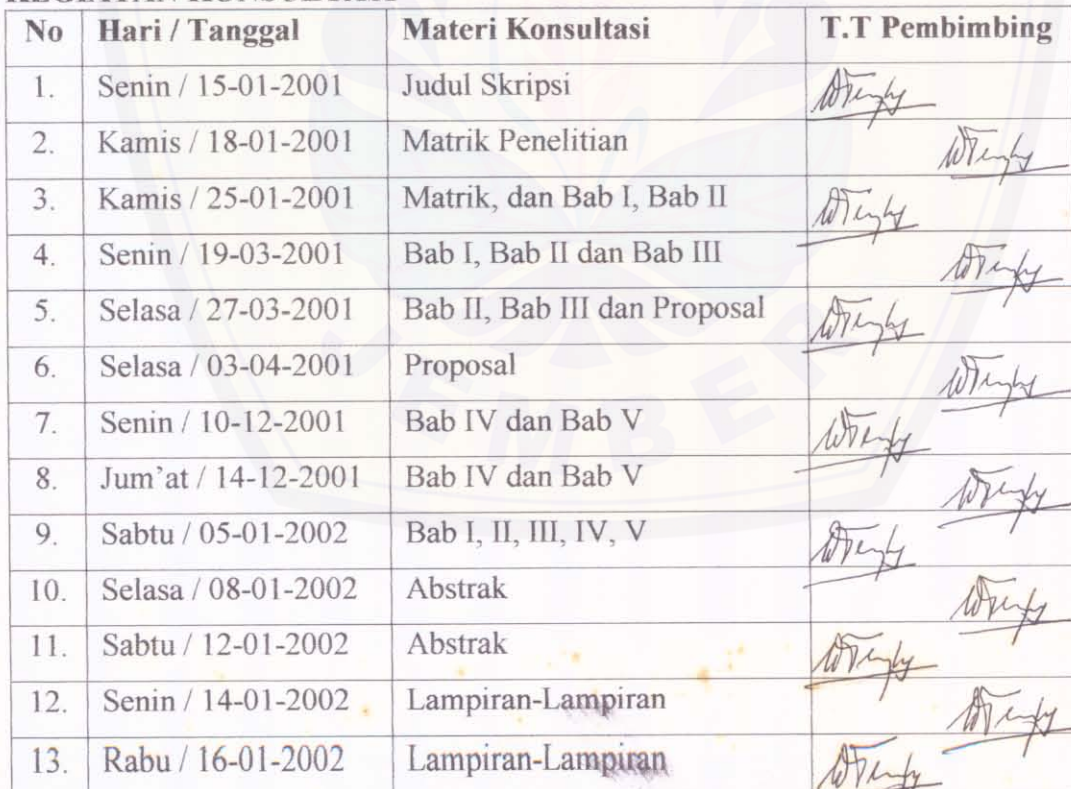 No Hari / Tanggal Materi Konsultasi T.T Pembimbing
1. Senin / 15-01-2001 Judul Skripsi
2. Kamis / 18-01-2001 Matrik Penelitian
3. Kamis / 25-01-2001 Matrik, dan Bab I, Bab II
4. Senin / 19-03-2001 Bab I, Bab II dan Bab III
5. Selasa / 27-03-2001 Bab II, Bab III dan Proposal
6. Selasa / 03-04-2001 Proposal
7. Senin / 10-12-2001 Bab IV dan Bab V
8. Jum'at / 14-12-2001 Bab IV dan Bab V
9. Sabtu / 05-01-2002 Bab I, II, III, IV, V
10. Selasa / 08-01-2002 Abstrak
11. Sabtu / 12-01-2002 Abstrak
12. Senin / 14-01-2002 Lampiran-Lampiran
13. Rabu / 16-01-2002 Lampiran-Lampiran
JEMBER